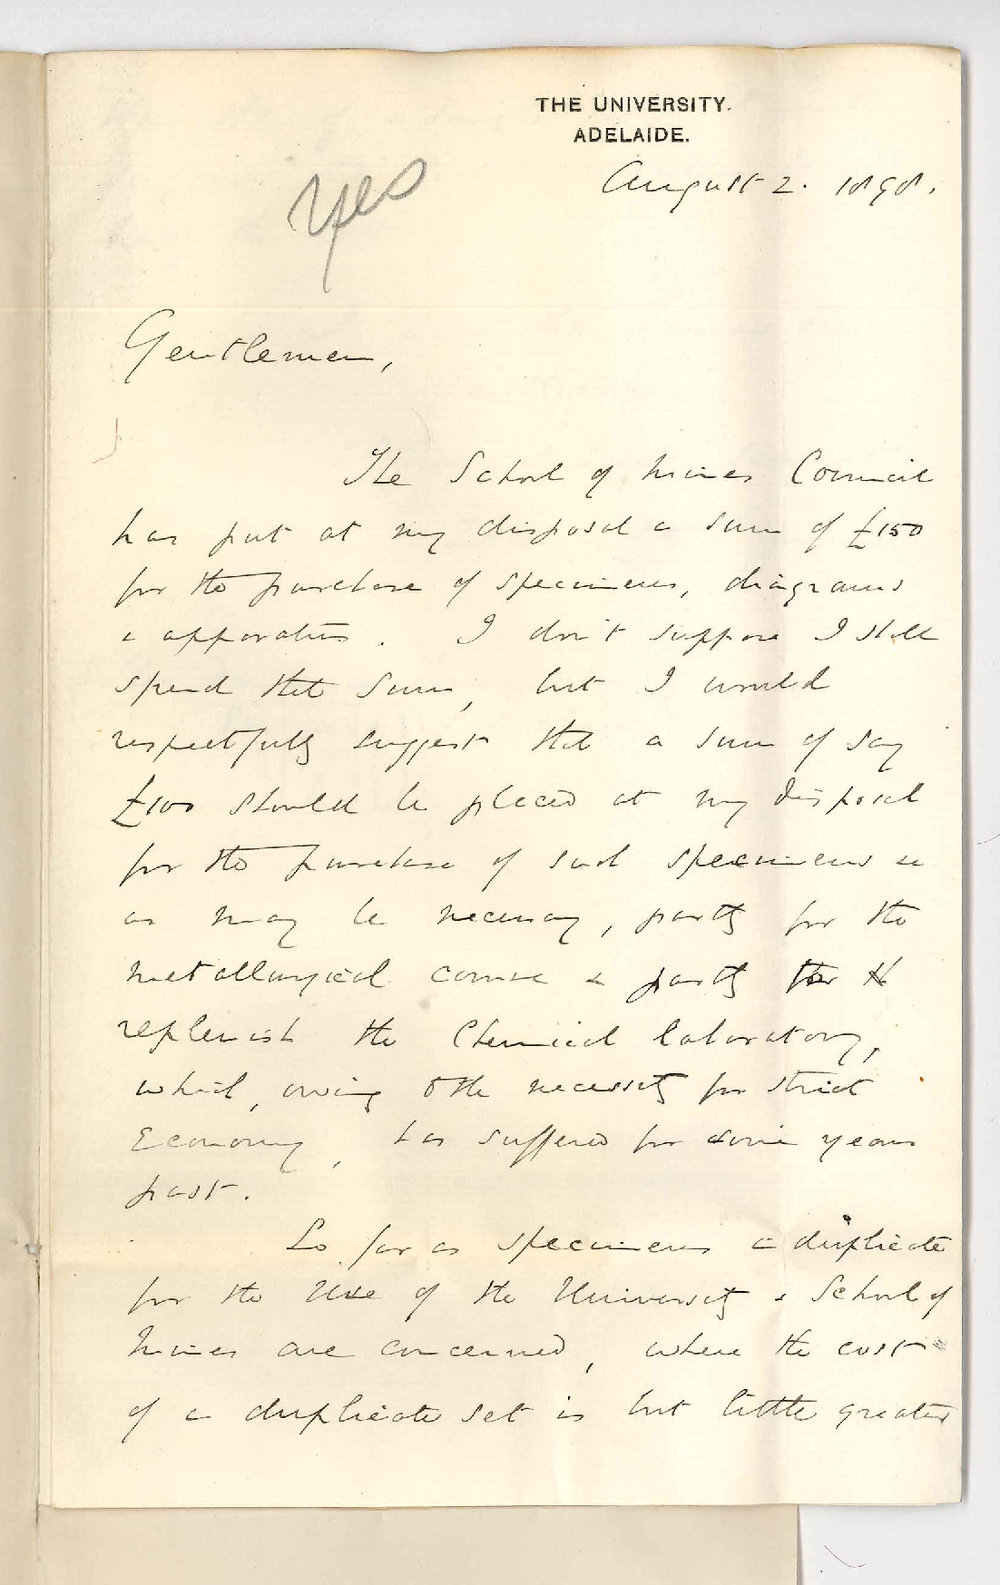 THE UNIVERSITY.
ADELAIDE.
August 2. 1898.
Yes
Gentlemen,
The School of Mines Council
has put at my disposal a sum of £150
for the purchase of specimens, diagrams
& apparatus. I don't suppose I shall
spend that sum, but I would
respectfully suggest that a sum of say
£100 should be placed at my disposal
for the purchase of such specimens &c
as may be necessary, partly for the
metallurgical course & partly to
replenish the Chemical laboratory,
which, owing to the necessity for strict
Economy, has suffered for some years
past.
So far as specimens in duplicate
for the use of the University & School of
Mines are concerned, where the cost
of a duplicate set is but little greater